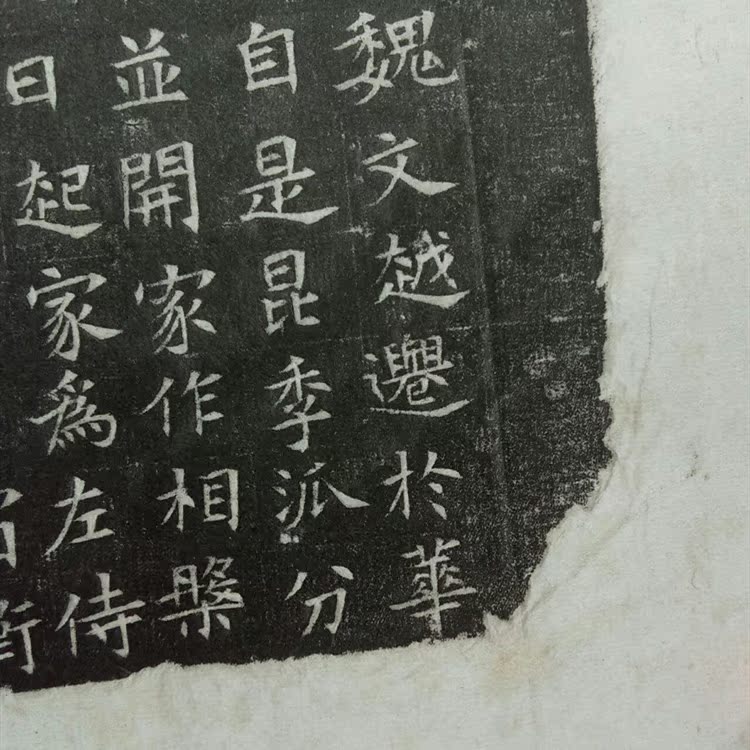 魏文越遷於華
自是昆季派分
並開家作相槃
日起家爲左侍